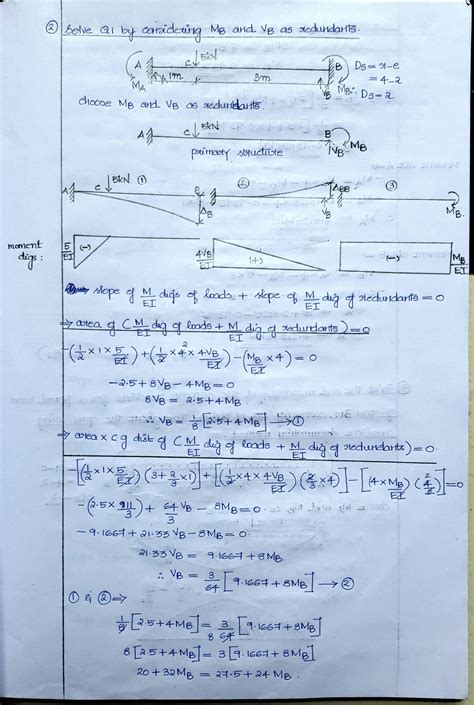 ② Solve Q1 by considering MB and VB as redundants.
5kN
A C B
1m 3m
MA VB MB
DS = r-e
= 4-2
DS = 2
choose MB and VB as redundants
A C 5kN B VB MB
primary structure
A C 5kN ① B ΔB
② ΔBB VB
③ MB
moment digs:
5/EI (-)
4VB/EI (+)
(-) MB/EI
slope of M/EI digs of loads + slope of M/EI dig of redundants = 0
⇒ area of (M/EI dig of loads + M/EI dig of redundants) = 0
-(1/2 × 1 × 5/EI) + (1/2 × 4 × 4VB/EI) - (MB/EI × 4) = 0
-2.5 + 8VB - 4MB = 0
8VB = 2.5 + 4MB
∴ VB = 1/8 [2.5 + 4MB] → ①
⇒ area × cg dist of (M/EI dig of loads + M/EI dig of redundants) = 0.
-[(1/2 × 1 × 5/EI)(3 + 2/3 × 1)] + [(1/2 × 4 × 4VB/EI)(2/3 × 4)] - [(4 × MB/EI)(4/2)] = 0
-(2.5 × 11/3) + 64/3 VB - 8MB = 0
-9.1667 + 21.33VB - 8MB = 0.
21.33VB = 9.1667 + 8MB
∴ VB = 3/64 [9.1667 + 8MB] → ②
① & ② ⇒
1/8 [2.5 + 4MB] = 3/64 [9.1667 + 8MB]
8[2.5 + 4MB] = 3[9.1667 + 8MB]
20 + 32MB = 27.5 + 24MB.